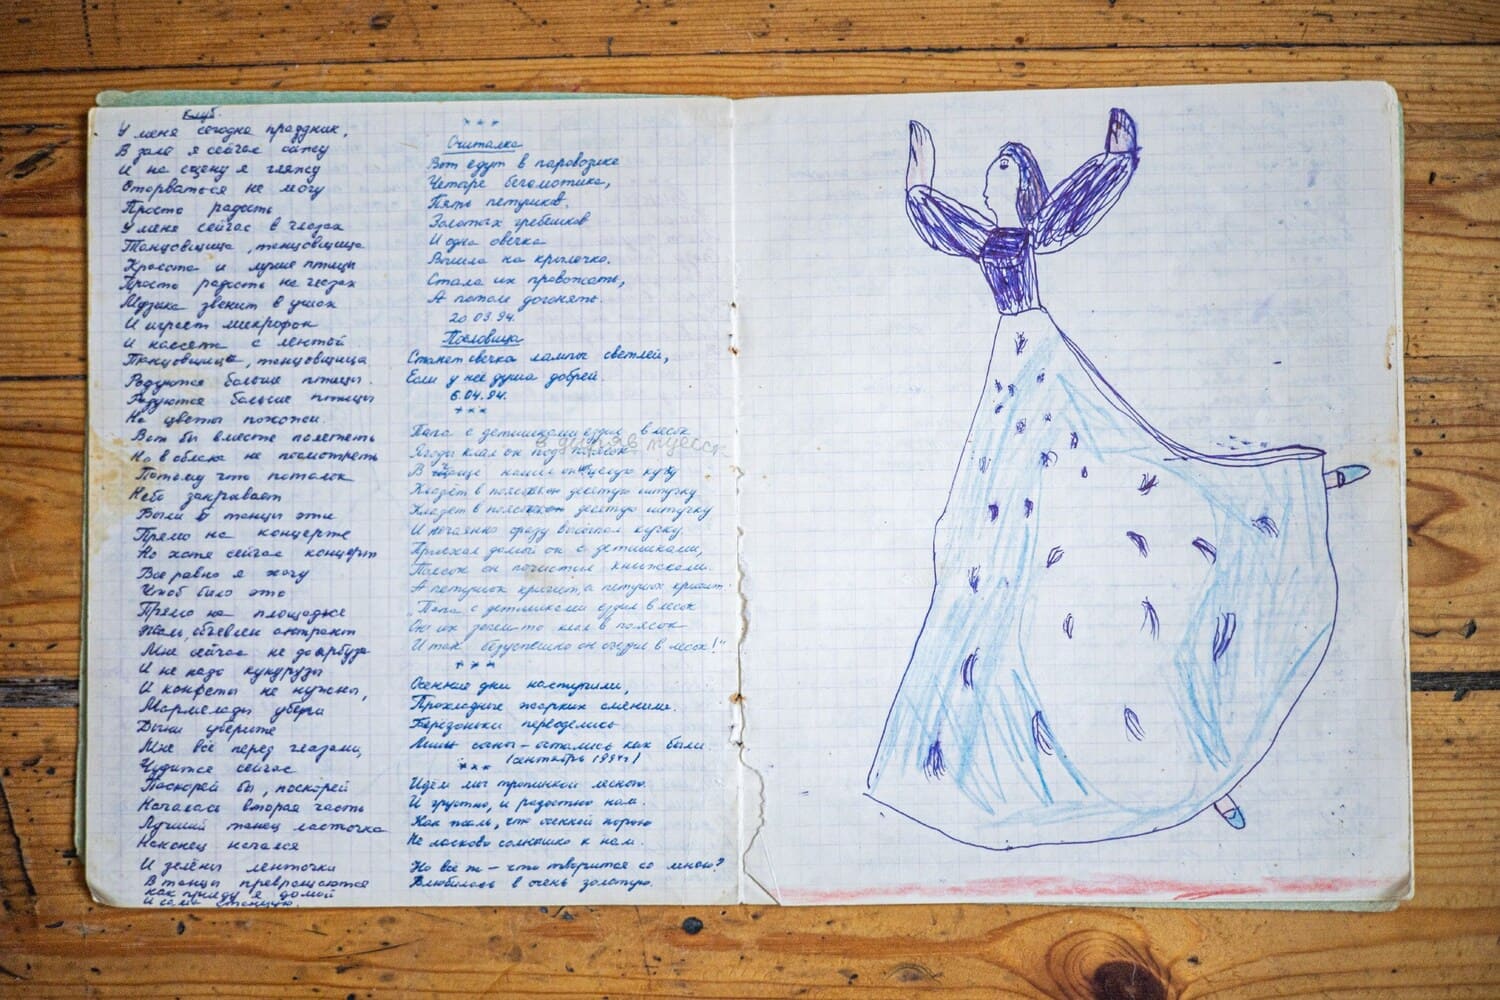 Клуб.
У меня сегодня праздник,
В зале я сейчас сижу
И на сцену я гляжу
Оторваться не могу
Просто радость
У меня сейчас в глазах
Танцовщица, танцовщица
Красота и лучше птицы
Просто радость на глазах
Музыка звенит в ушах
И играет микрофон
И кассета с лентой
Танцовщица, танцовщица
Радуются больше птицы.
Радуются больше птицы
На цветы похожи.
Вот бы вместе полететь
Но в облака не посмотреть
Потому что потолок
Небо закрывает
Были б танцы эти
Прямо на концерте
Но хотя сейчас концерт
Все равно я хочу
Чтоб было это
Прямо на площадке
Жаль, объявлен антракт
Мне сейчас не до арбуза
И не надо кукурузы
И конфеты не нужны,
Мармелады убери
Дыни уберите
Мне всё перед глазами,
Чудится сейчас
Поскорей бы, поскорей
Началась вторая часть
Лучший танец ласточка
Наконец начался
И зелёны ленточки
В танцы превращаются
как приду я домой
И сама станцую.
***
Считалка
Вот едут в паровозике
Четыре бегемотика,
Пять петушков.
Золотых гребешков
И одна овечка
Вышла на крылечко.
Стала их провожать,
А потом догонять.
20.03.94.
Пословица
Станет свечка лампы светлей,
Если у неё душа добрей.
6.04.94.
***
Папа с детишками ездил в лесок
Ягоды клал он под поясок
В чаще нашел он целую кучу
Кладёт в поясок он десятую штучку
Кладёт в поясок он десятую штучку
И нечаянно сразу высыпал кучку
Приехал домой он с детишками,
Поясок он почистил книжками.
А петушок кричит, а петушок кричит:
„Папа с детишками ездил в лесок
Он их зачем-то клал в поясок
И так безуспешно он съездил в лесок!"
***
Осенние дни наступили,
Прохладные жарких сменили.
Берёзоньки переоделись
Лишь сосны - остались как были.
(сентябрь 1994г)
***
Идём мы тропинкой лесною.
И грустно, и радостно нам.
Как жаль, что осенней порою
Не ласково солнышко к нам.
Но всё ж - что творится со мною?
Влюбилась в осень золотую.